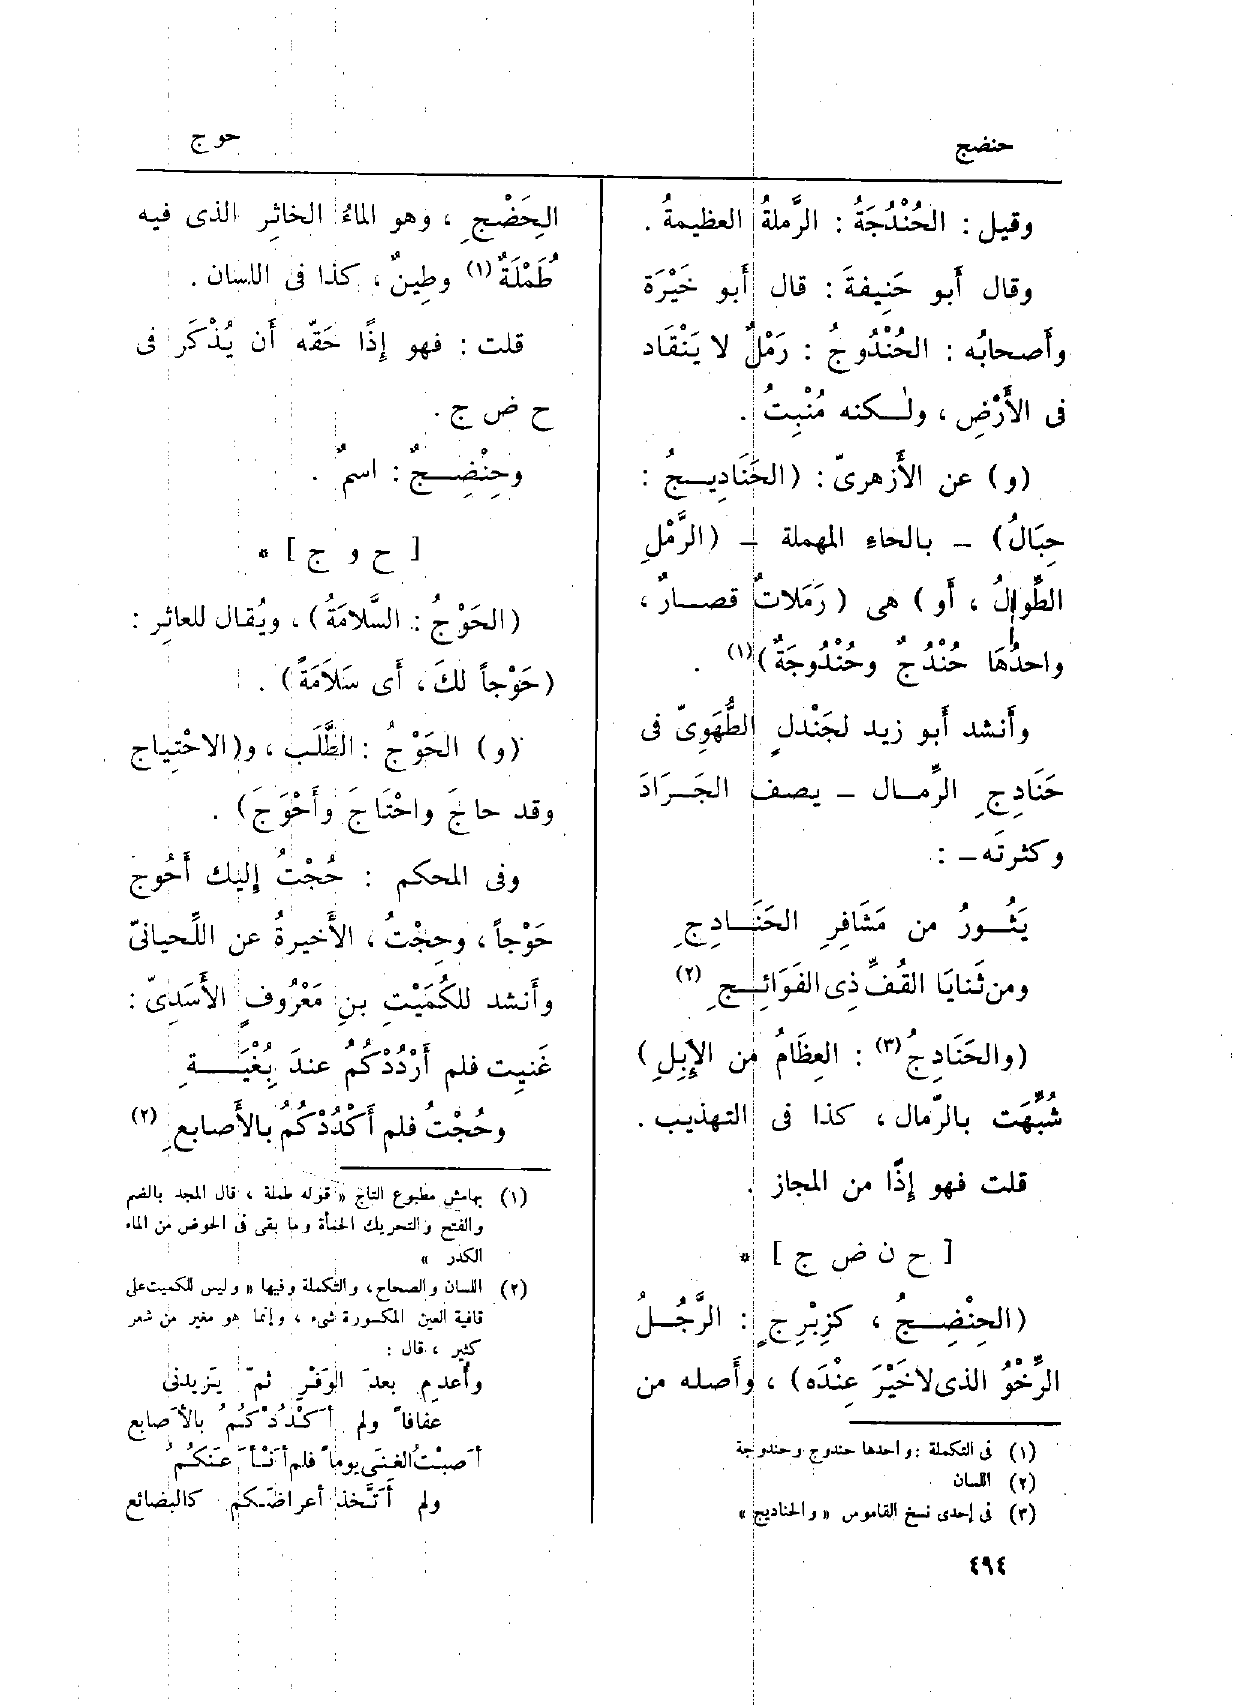 حنضج
حوج
وقيل : الحُنْدُجَةُ : الرَّملةُ العظيمةُ .
وقال أَبو حَنِيفةَ : قال أَبو خَيْرَة
وأَصحابُه : الحُنْدُوجُ : رَمْلٌ لا يَنْقَاد
فى الأَرْضِ ، ولٰكنه مُنْبِتٌ .
(و) عن الأَزهرىّ : (الحَنَادِيجُ :
حِبَالُ) – بالحاءِ المهملة – (الرَّمْلِ
الطِّوالُ ، أَو) هى (رَمَلاتٌ قصارٌ ،
واحدُهَا حُنْدُجٌ وحُنْدُوجَةٌ)(١) .
وأَنشد أَبو زيد لجَنْدلٍ الطُّهَوِىّ فى
حَنَادِجِ الرِّمال – يصف الجَرَادَ
وكثرتَه– :
يَثُورُ من مَشَافِرِ الحَنَادِجِ
ومن ثَنايَا القُفِّ ذِى الفَوَائِجِ (٢)
(والحَنَادِجُ(٣) : العِظَامُ من الإِبِلِ)
شُبِّهَت بالرِّمال ، كذا فى التهذيب .
قلت فهو إِذًا من المجاز .
[ ح ن ض ج ] *
(الحِنْضِجُ ، كزِبْرِجٍ : الرَّجُلُ
الرِّخْوُ الذى لاخَيْرَ عِنْدَه) ، وأَصله من
(١) فى التكملة : واحدها حندوج وحندوجة
(٢) اللسان
(٣) فى إحدى نسخ القاموس « والحناديج »
٤٩٤
الحِضْجِ ، وهو الماءُ الخاثِر الذى فيه
طُمْلَةٌ(١) وطِينٌ ، كذا فى اللسان .
قلت : فهو إِذًا حَقّه أَن يُذْكَر فى
ح ض ج .
وحِنْضِجٌ : اسمٌ .
[ ح و ج ] *
(الحَوْجُ : السَّلامَةُ) ، ويُقال للعاثِر :
(حَوْجاً لكَ ، أَى سَلاَمَةً) .
(و) الحَوْجُ : الطَّلَب ، و(الاحْتِياج
وقد حاجَ واحْتَاجَ وأَحْوَجَ) .
وفى المحكم : حُجْتُ إِليك أَحُوج
حَوْجاً ، وحِجْتُ ، الأَخيرةُ عن اللِّحيانىّ
وأَنشد للكُمَيْتِ بنِ مَعْرُوفٍ الأَسَدِىّ :
غَنِيت فلم أَرْدُدْكُمُ عندَ بُغْيَةٍ
وحُجْتُ فلم أَكْدُدْكُمُ بالأَصابعِ (٢)
(١) بهامش مطبوع التاج « قوله طملة ، قال المجد بالضم
والفتح والتحريك الحمأة وما بقى فى الحوض من الماء
الكدر »
(٢) اللسان والصحاح، والتكملة وفيها « وليس للكميت على
قافية العين المكسورة شىء ، وإنما هو مغير من شعر
كثير ، قال :
وأعدِم بعدَ الوَفْرِ ثمّ يَزيدنى
عفافاً ولم أكْدُدْكُمُ بالأصابع
أصبْتُ الغِنَى يوماً فلم أنْأ عَنكُمُ
ولم أتّخذ أعراضَكم كالبضائع